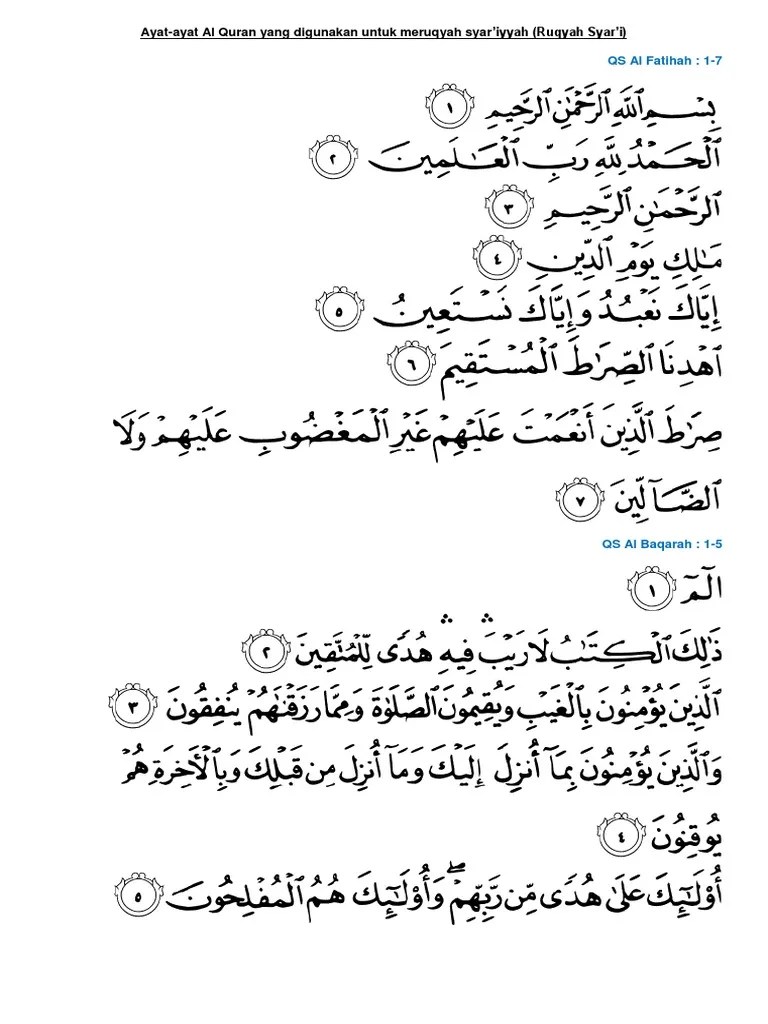 Ayat-ayat Al Quran yang digunakan untuk meruqyah syar'iyyah (Ruqyah Syar'i)
QS Al Fatihah : 1-7
بِسْمِ ٱللَّهِ ٱلرَّحْمَـٰنِ ٱلرَّحِيمِ ١
ٱلْحَمْدُ لِلَّهِ رَبِّ ٱلْعَـٰلَمِينَ ٢
ٱلرَّحْمَـٰنِ ٱلرَّحِيمِ ٣
مَـٰلِكِ يَوْمِ ٱلدِّينِ ٤
إِيَّاكَ نَعْبُدُ وَإِيَّاكَ نَسْتَعِينُ ٥
ٱهْدِنَا ٱلصِّرَٰطَ ٱلْمُسْتَقِيمَ ٦
صِرَٰطَ ٱلَّذِينَ أَنْعَمْتَ عَلَيْهِمْ غَيْرِ ٱلْمَغْضُوبِ عَلَيْهِمْ وَلَا
ٱلضَّآلِّينَ ٧
QS Al Baqarah : 1-5
الٓمٓ ١
ذَٰلِكَ ٱلْكِتَـٰبُ لَا رَيْبَ ۛ فِيهِ ۛ هُدًى لِّلْمُتَّقِينَ ٢
ٱلَّذِينَ يُؤْمِنُونَ بِٱلْغَيْبِ وَيُقِيمُونَ ٱلصَّلَوٰةَ وَمِمَّا رَزَقْنَـٰهُمْ يُنفِقُونَ ٣
وَٱلَّذِينَ يُؤْمِنُونَ بِمَآ أُنزِلَ إِلَيْكَ وَمَآ أُنزِلَ مِن قَبْلِكَ وَبِٱلْـَٔاخِرَةِ هُمْ
يُوقِنُونَ ٤
أُو۟لَـٰٓئِكَ عَلَىٰ هُدًى مِّن رَّبِّهِمْ ۖ وَأُو۟لَـٰٓئِكَ هُمُ ٱلْمُفْلِحُونَ ٥